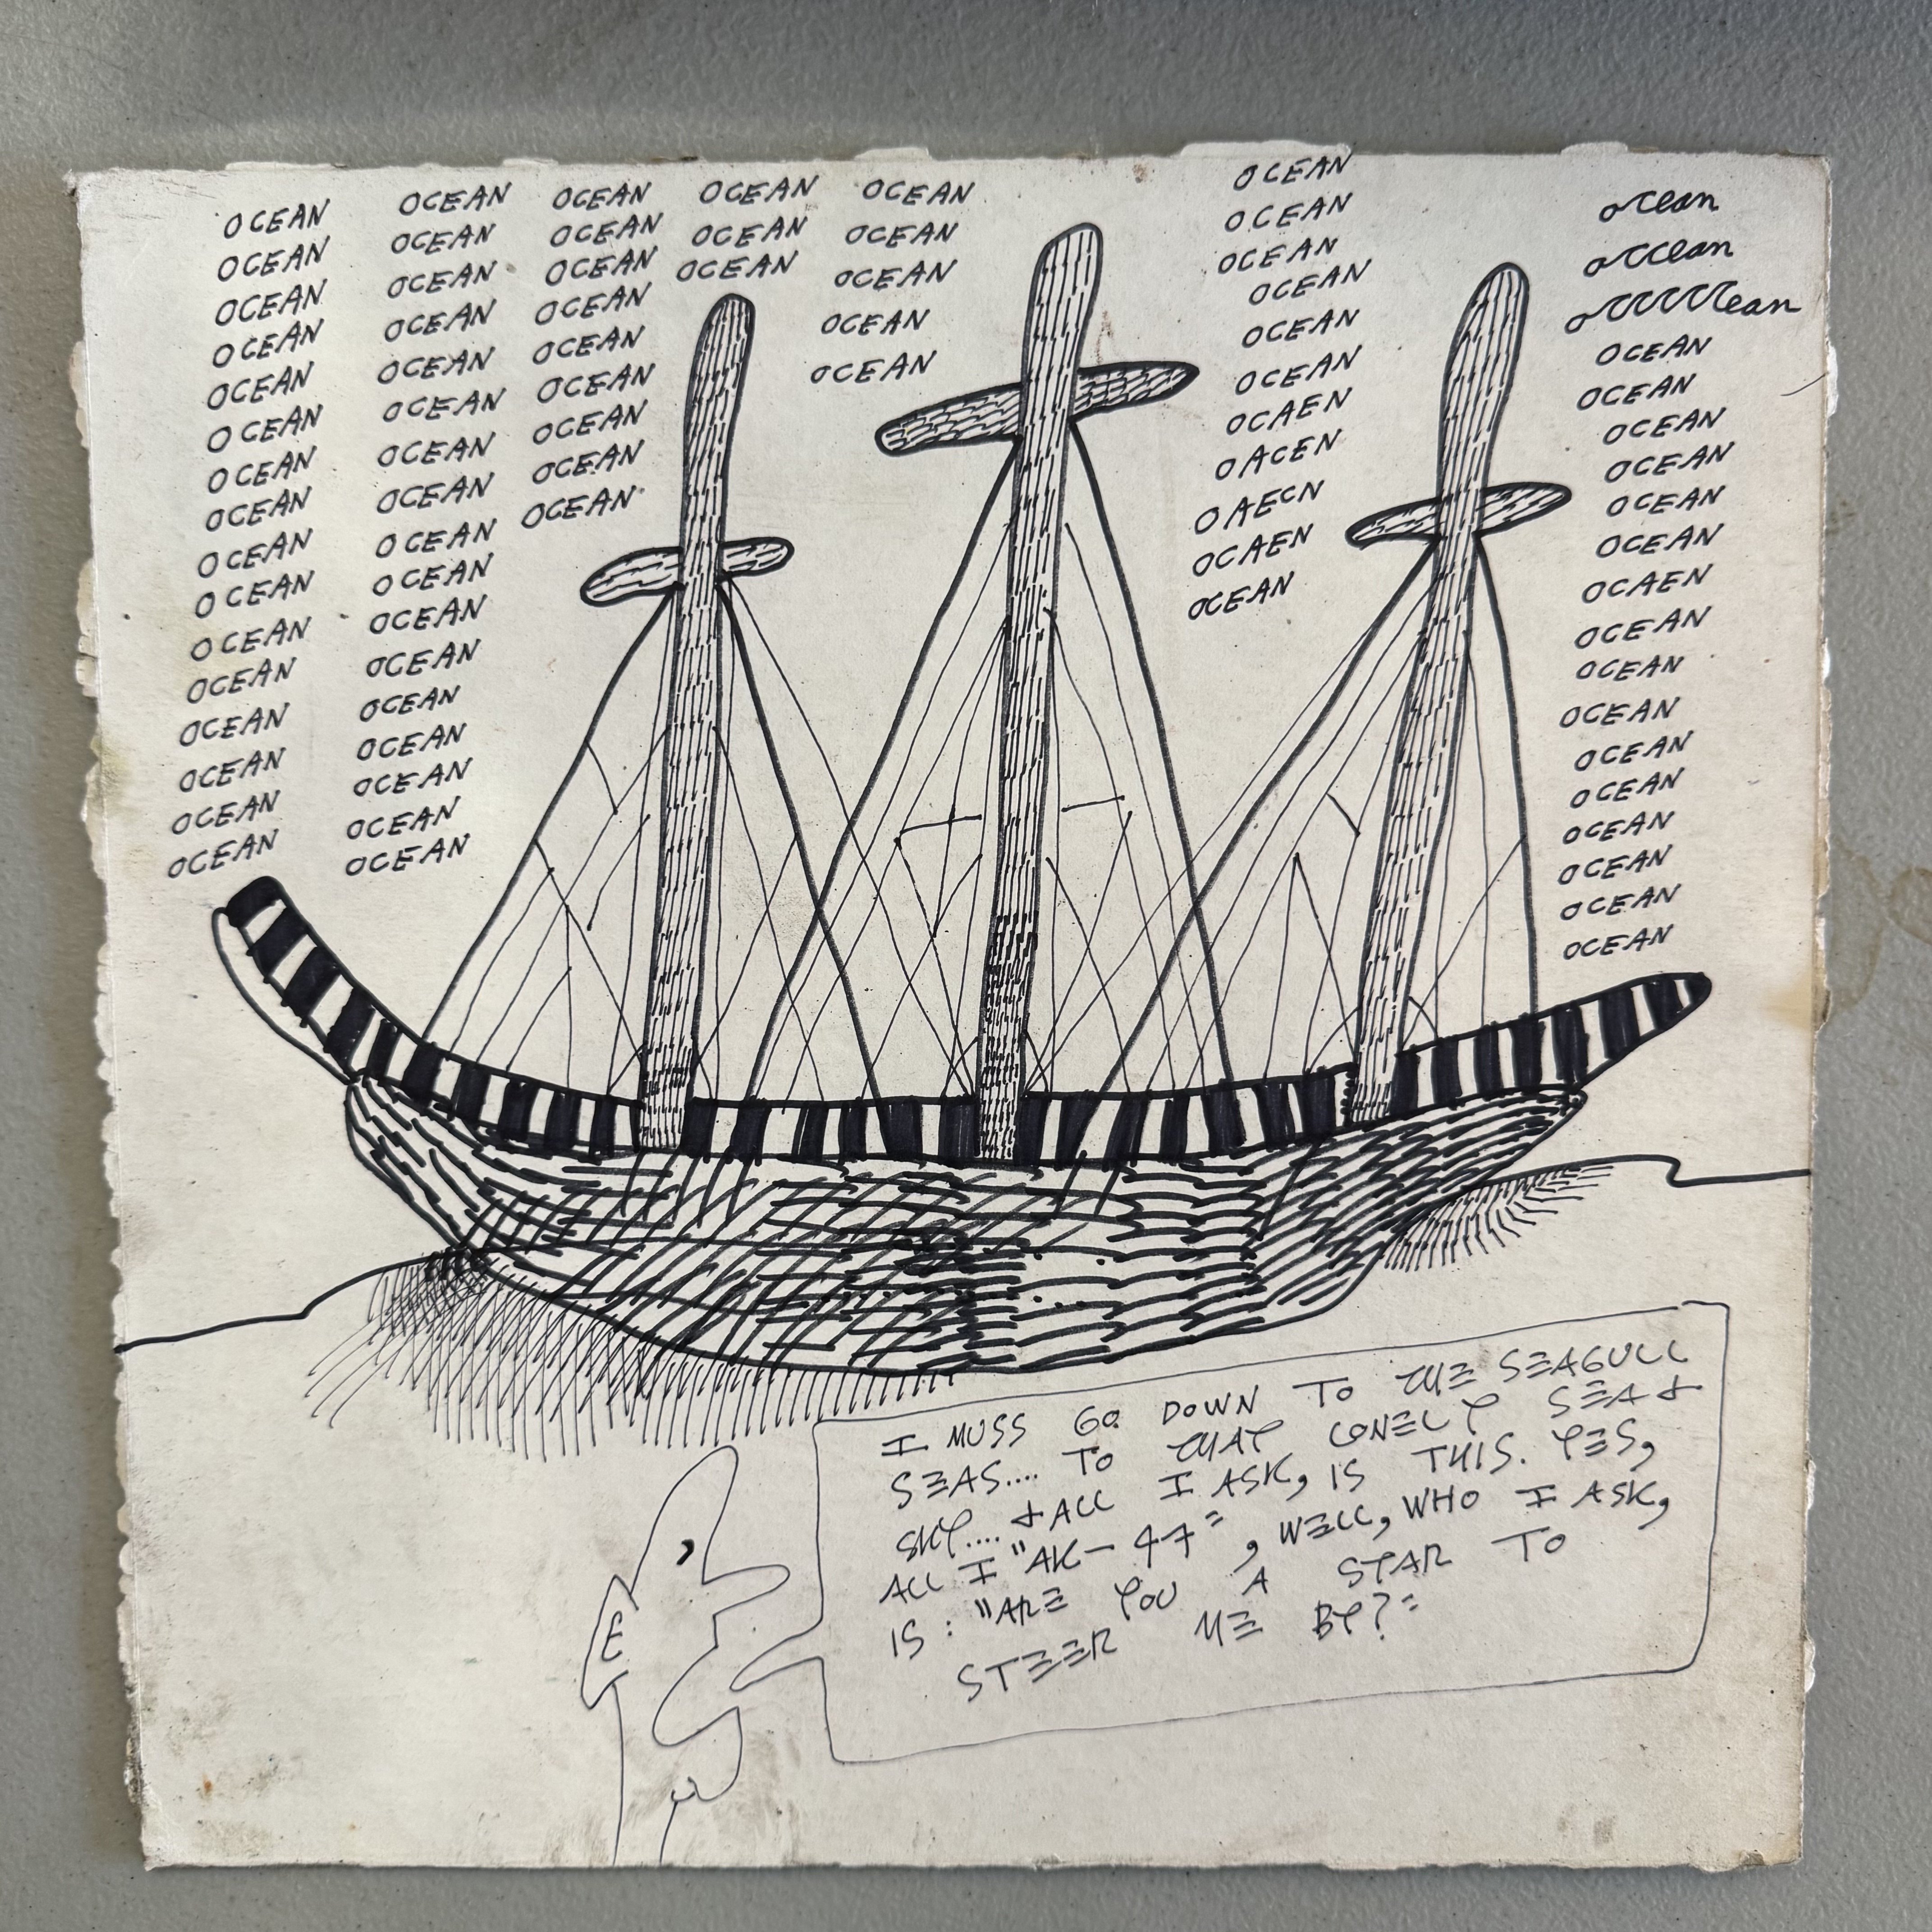 OCEAN
OCEAN
OCEAN
OCEAN
OCEAN
OCEAN
OCEAN
OCEAN
OCEAN
OCEAN
OCEAN
OCEAN
OCEAN
OCEAN
OCEAN
OCEAN
OCEAN
OCEAN
OCEAN
OCEAN
OCEAN
OCEAN
OCEAN
OCEAN
OCEAN
OCEAN
OCEAN
OCEAN
OCEAN
OCEAN
OCEAN
OCEAN
OCEAN
OCEAN
OCEAN
OCEAN
OCEAN
OCEAN
OCEAN
OCEAN
OCEAN
OCEAN
OCEAN
OCEAN
OCEAN
OCEAN
OCEAN
OCEAN
OCEAN
OCEAN
OCEAN
OCEAN
OCEAN
OCEAN
OCEAN
OCEAN
OCAEN
OACEN
OAECN
OCAEN
OCEAN
ocean
occean
occcccean
OCEAN
OCEAN
OCEAN
OCEAN
OCEAN
OCEAN
OCAEN
OCEAN
OCEAN
OCEAN
OCEAN
OCEAN
OCEAN
OCEAN
OCEAN
OCEAN
I MUSS GO DOWN TO THE SEAGULL
SEAS.... TO THAT LONELY SEA &
SKY.... & ALL I ASK, IS THIS. YES,
ALL I "AK-47", WELL, WHO I ASK,
IS: "ARE YOU A STAR TO
STEER ME BY?"
E